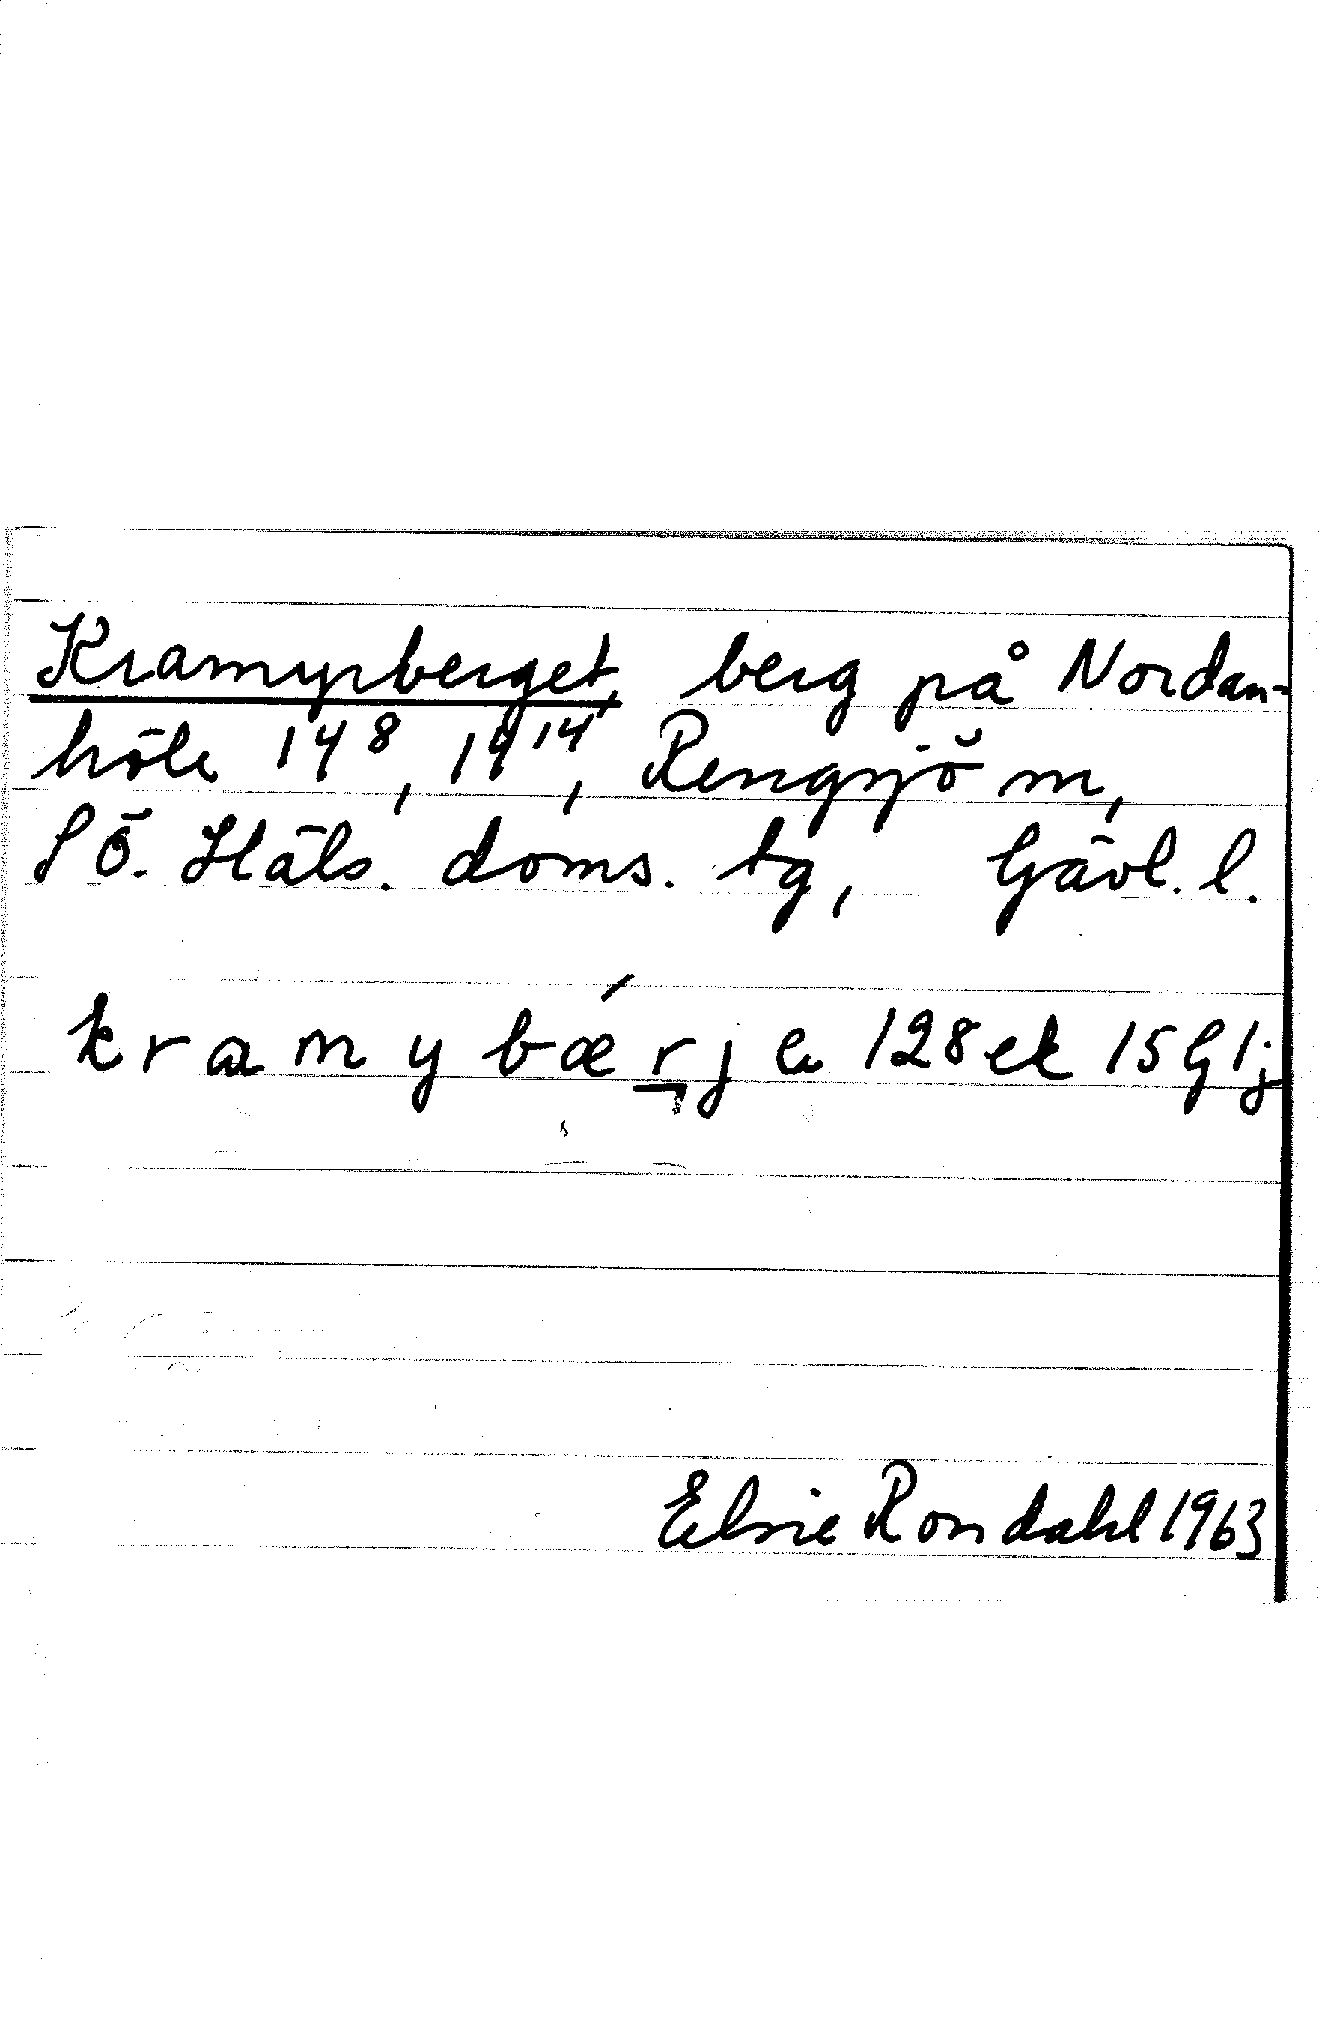 Kramyrberget, berg på Nordan-
höle 14⁸, 19¹⁴, Rengsjö m,
SÖ. Häls. doms. tg, Gävl. l.
kramybærje 128ek 15G1j
Elsie Rondahl 1963